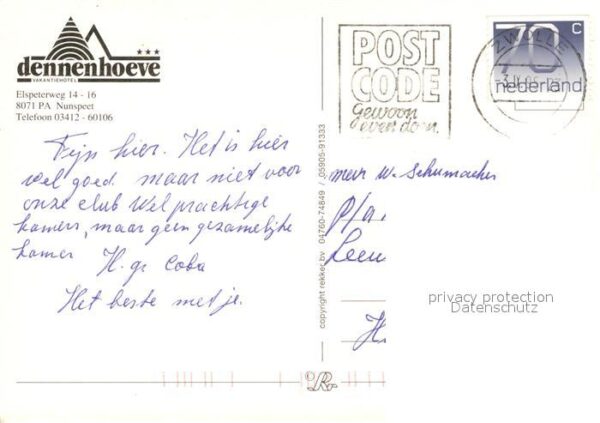 dennenhoeve
VAKANTIEHOTEL
Elspeterweg 14 - 16
8071 PA Nunspeet
Telefoon 03412 - 60106
Fijn hier. Het is hier
wel goed. maar niet voor
onze club Wel prachtige
kamers, maar geen gezamelijke
kamer H. gr Coba
Het beste met je.
copyright rekker bv 04760-74849 / 05905-91333
POST
CODE
Gewoon
even doen.
ZWOLLE
70 c
nederland
mevr W. Schumacher
Pla
Leeu
H
privacy protection
Datenschutz